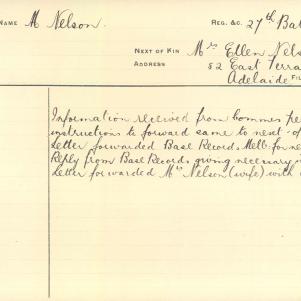 NAME M Nelson.
REG. &c. 27th Bat
NEXT OF KIN Mrs Ellen Nels
ADDRESS 82 East Terra
Adelaide FIL
Information received from Commrs
instructions to forward same to next-of
Letter forwarded Base Records, Melb: for ne
Reply from Base Records giving necessary
Letter forwarded Mrs Nelson (wife) with